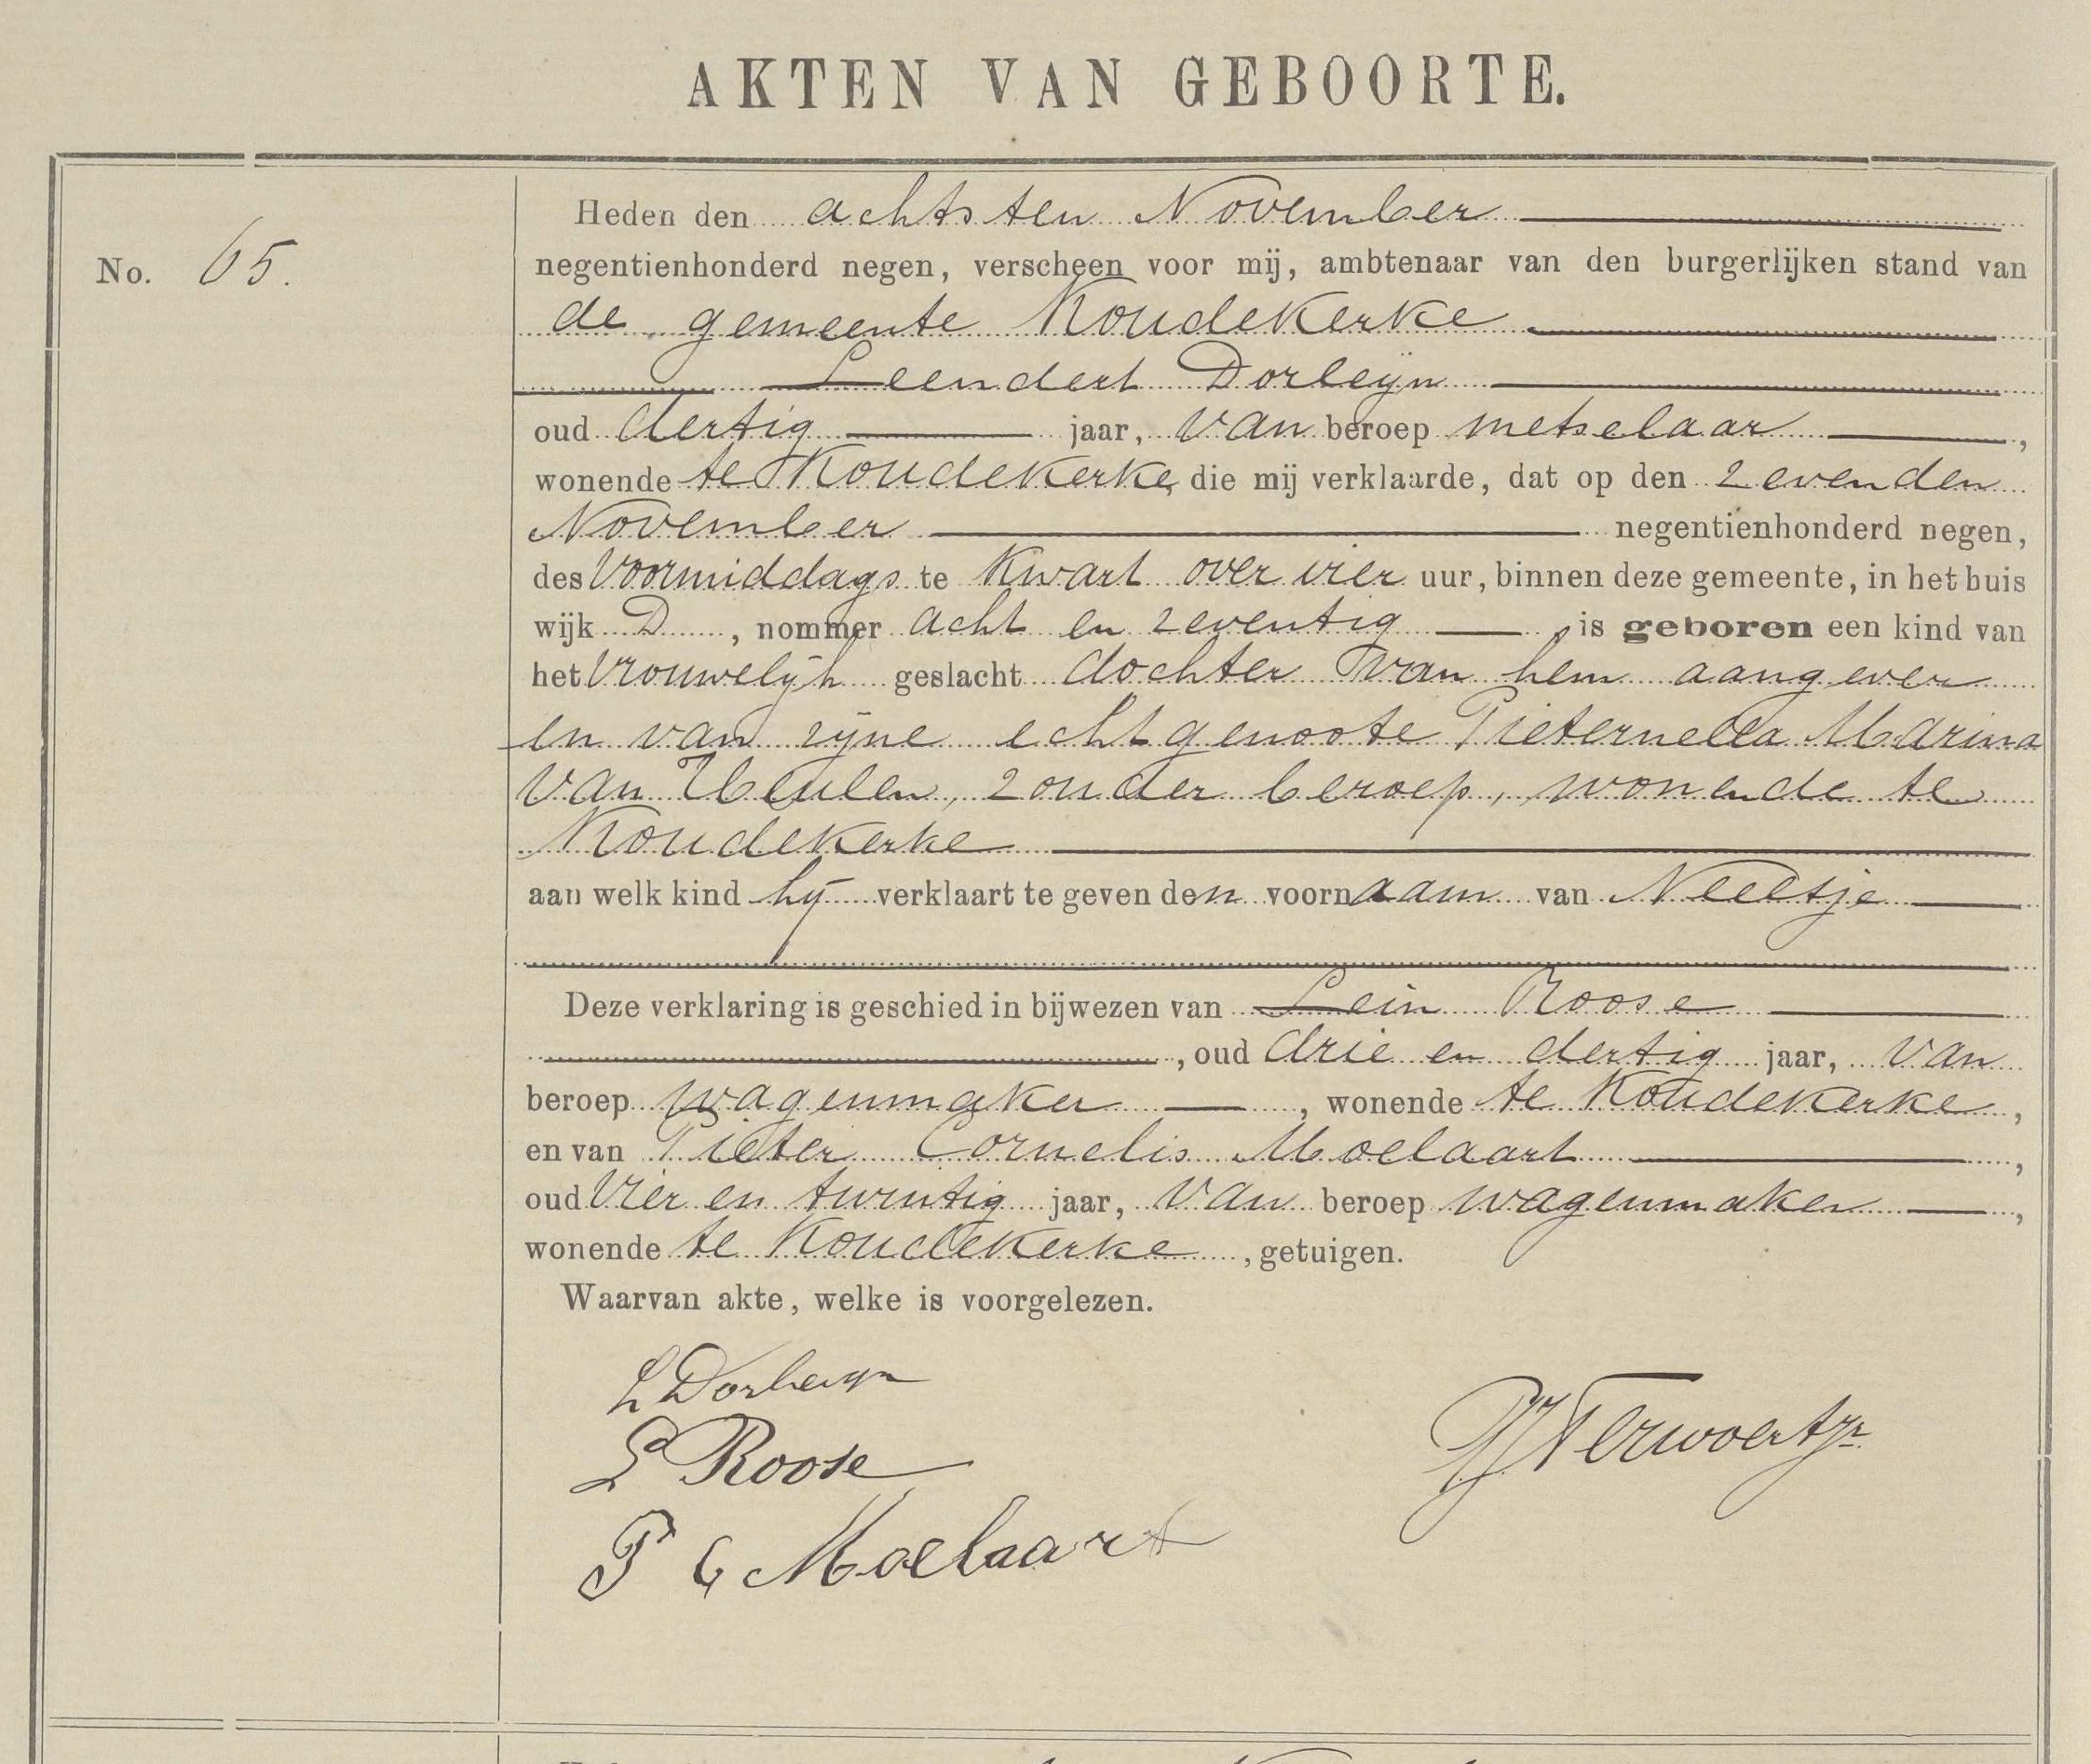 AKTEN VAN GEBOORTE.
No. 65.
Heden den achtsten November
negentienhonderd negen, verscheen voor mij, ambtenaar van den burgerlijken stand van
de gemeente Koudekerke
Leendert Dorleijn
oud dertig jaar, van beroep metselaar,
wonende te Koudekerke, die mij verklaarde, dat op den zevenden
November negentienhonderd negen,
des Voormiddags te kwart over vier uur, binnen deze gemeente, in het huis
wijk D, nommer acht en zeventig, is geboren een kind van
het Vrouwelijk geslacht dochter van hem aangever
en van zijne echtgenoote Pieternella Marina
van Meulen, zonder beroep, wonende te
Koudekerke
aan welk kind hij verklaart te geven den voornaam van Neeltje
Deze verklaring is geschied in bijwezen van Lein Roose
, oud drie en dertig jaar, van
beroep wagenmaker, wonende te Koudekerke,
en van Pieter Cornelis Moelaart,
oud Vier en twintig jaar, van beroep wagenmaker,
wonende te Koudekerke, getuigen.
Waarvan akte, welke is voorgelezen.
L Dorleijn
L Roose
P C Moelaart